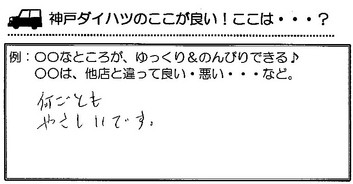 神戸ダイハツのここが良い！ここは・・・？
例：〇〇なところが、ゆっくり＆のんびりできる♪
〇〇は、他店と違って良い・悪い・・・など。
何ごとも
やさしいです。